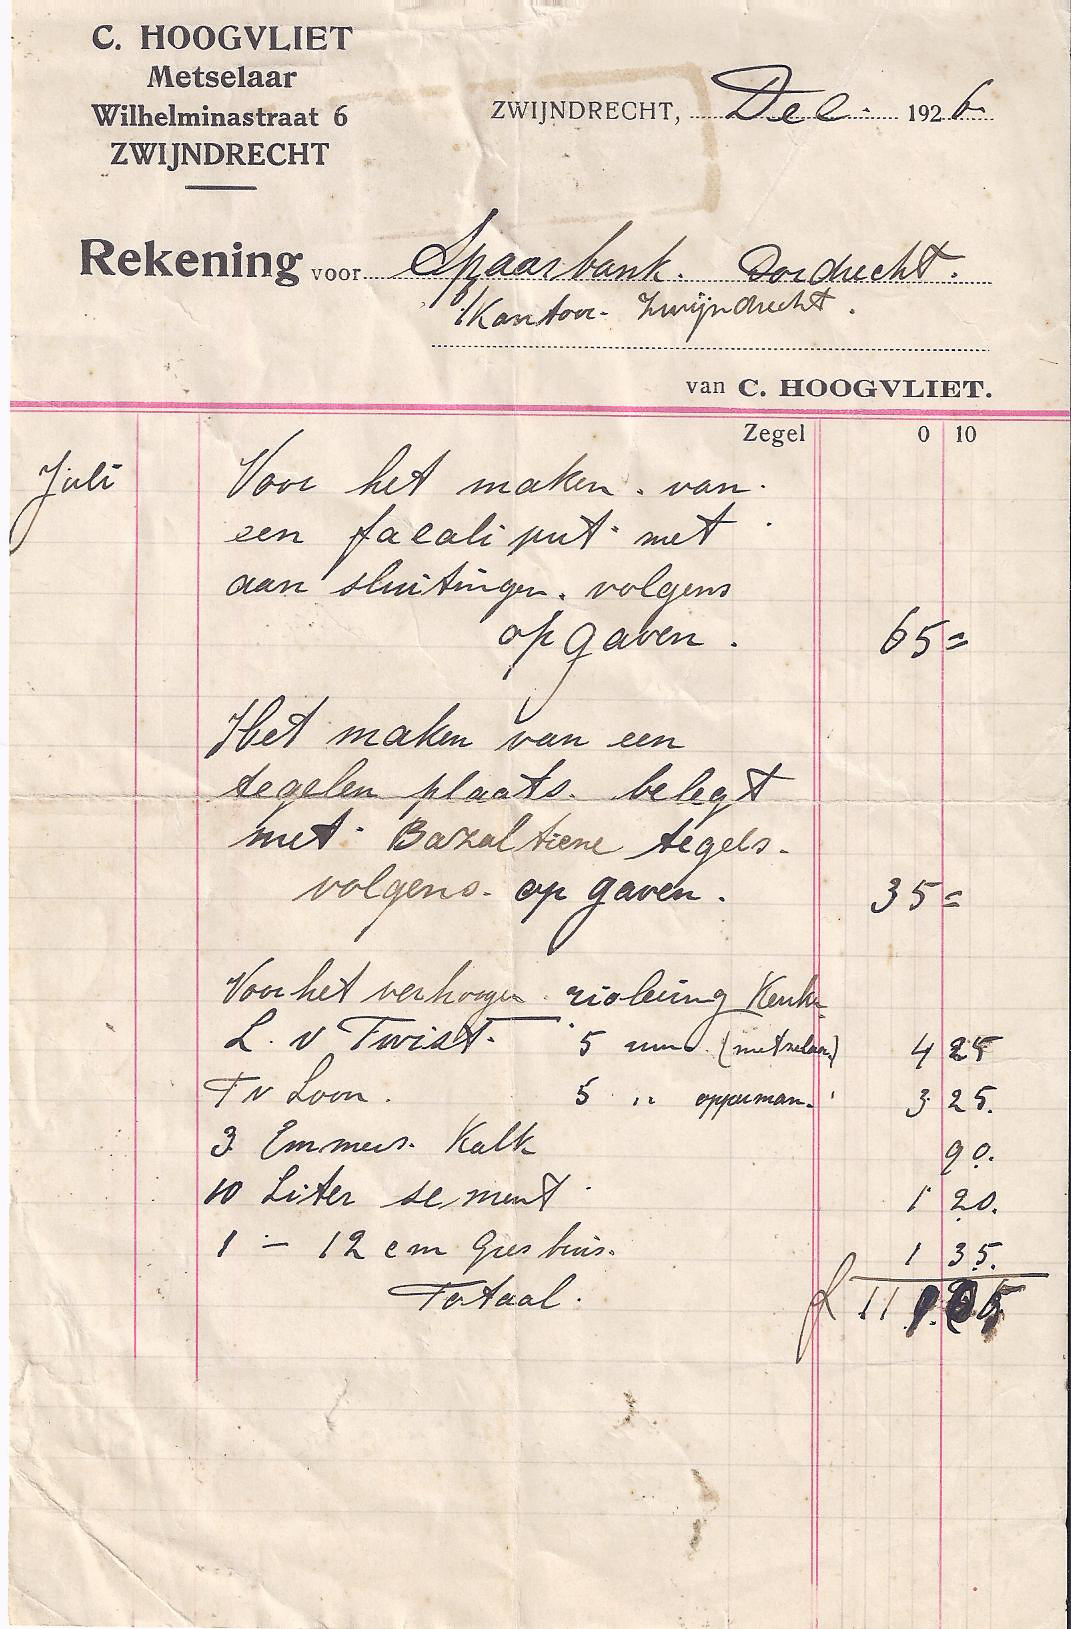 C. HOOGVLIET
Metselaar
Wilhelminastraat 6
ZWIJNDRECHT
ZWIJNDRECHT, Dec. 1926
Rekening voor Spaarbank. Dordrecht.
Kantoor- Zwijndrecht.
van C. HOOGVLIET.
Zegel 0 10
Juli Voor het maken van
een facali put met
aan sluitingen. volgens
op gaven. 65=
Het maken van een
tegelen plaats. belegt
met Bazaltiene tegels.
volgens. op gaven. 35=
Voor het verhoogen rioleering
L. v Twist. 5 uur (metselaar) 4 25
T v Loon. 5 " opperman. 3 25.
3 Emmers. Kalk 90.
10 Liter sement 1 20.
1 - 12 cm Gresbuis. 1 35.
Totaal. f